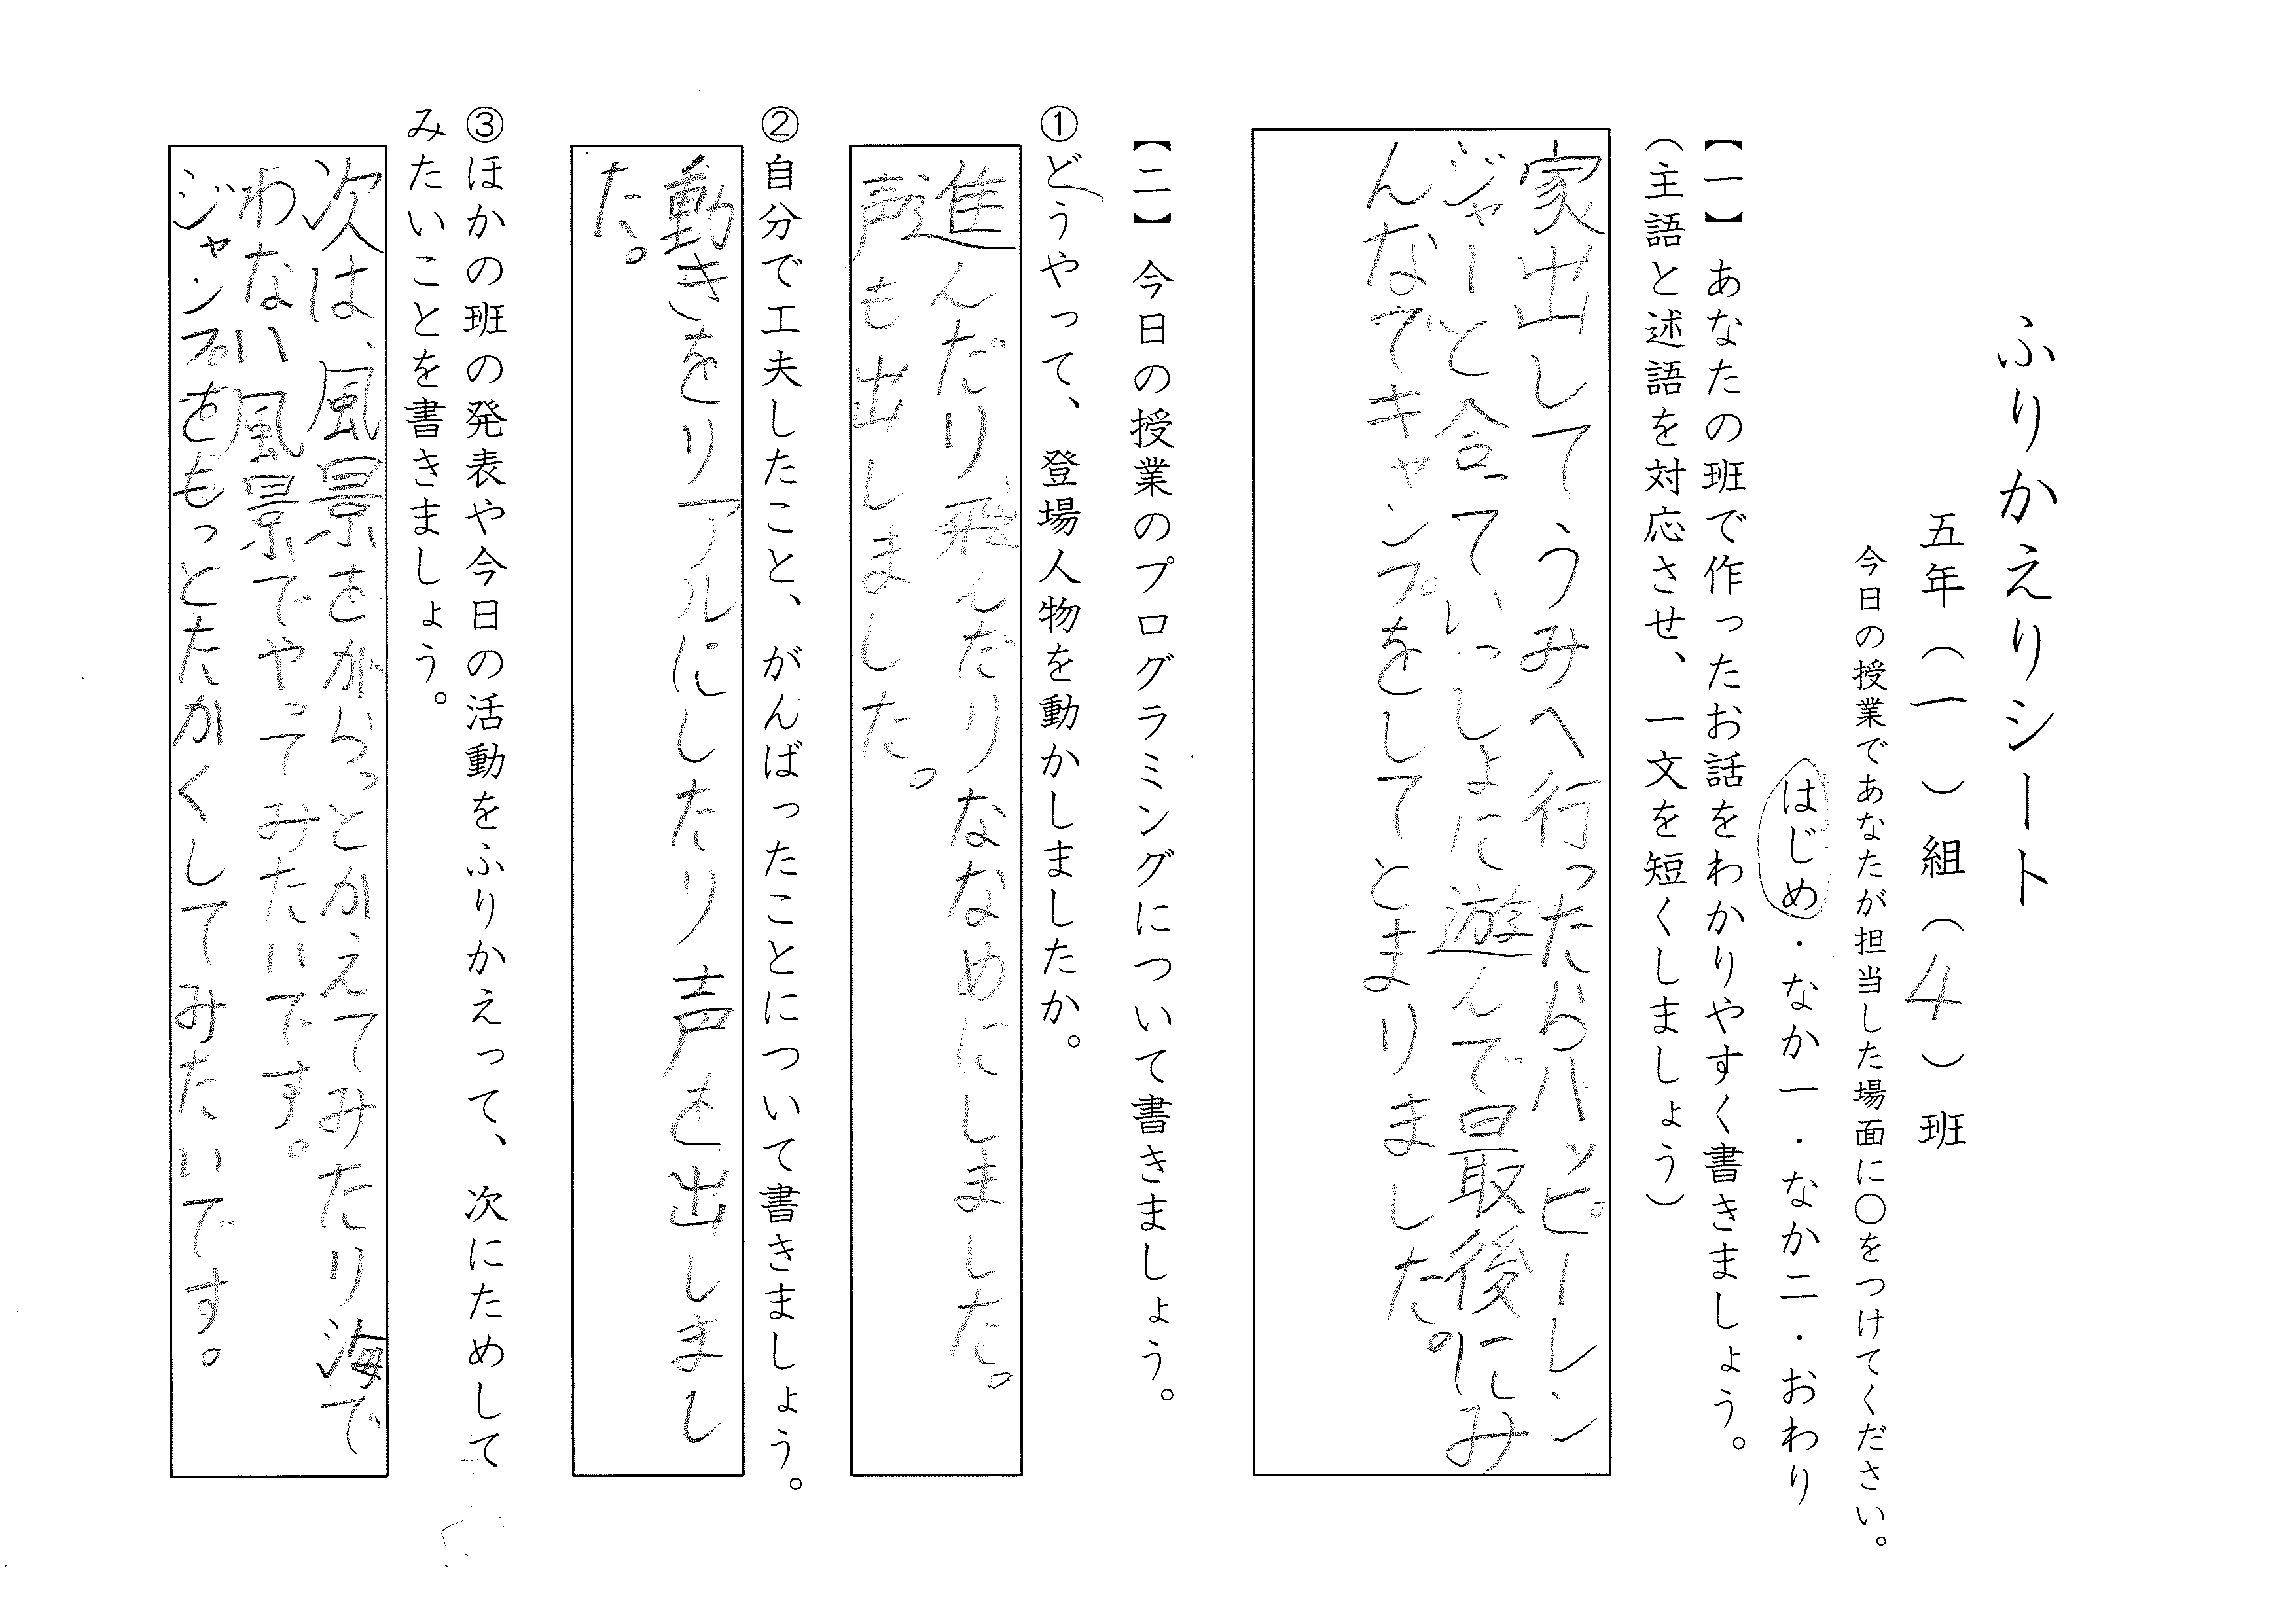 ふりかえりシート
五年（一）組（４）班
今日の授業であなたが担当した場面に〇をつけてください。
はじめ・なか一・なか二・おわり
【一】あなたの班で作ったお話をわかりやすく書きましょう。
（主語と述語を対応させ、一文を短くしましょう）
家出してうみへ行ったらハッピーレン
ジャーと合っていっしょに遊んで最後にみ
んなでキャンプをしてとまりました。
【二】今日の授業のプログラミングについて書きましょう。
①どうやって、登場人物を動かしましたか。
進んだり飛んだりななめにしました。
声も出しました。
②自分で工夫したこと、がんばったことについて書きましょう。
動きをリアルにしたり声を出しまし
た。
③ほかの班の発表や今日の活動をふりかえって、次にためして
みたいことを書きましょう。
次は、風景をがらっとかえてみたり海で
わない風景でやってみたいです。
ジャンプをもっとたかくしてみたいです。